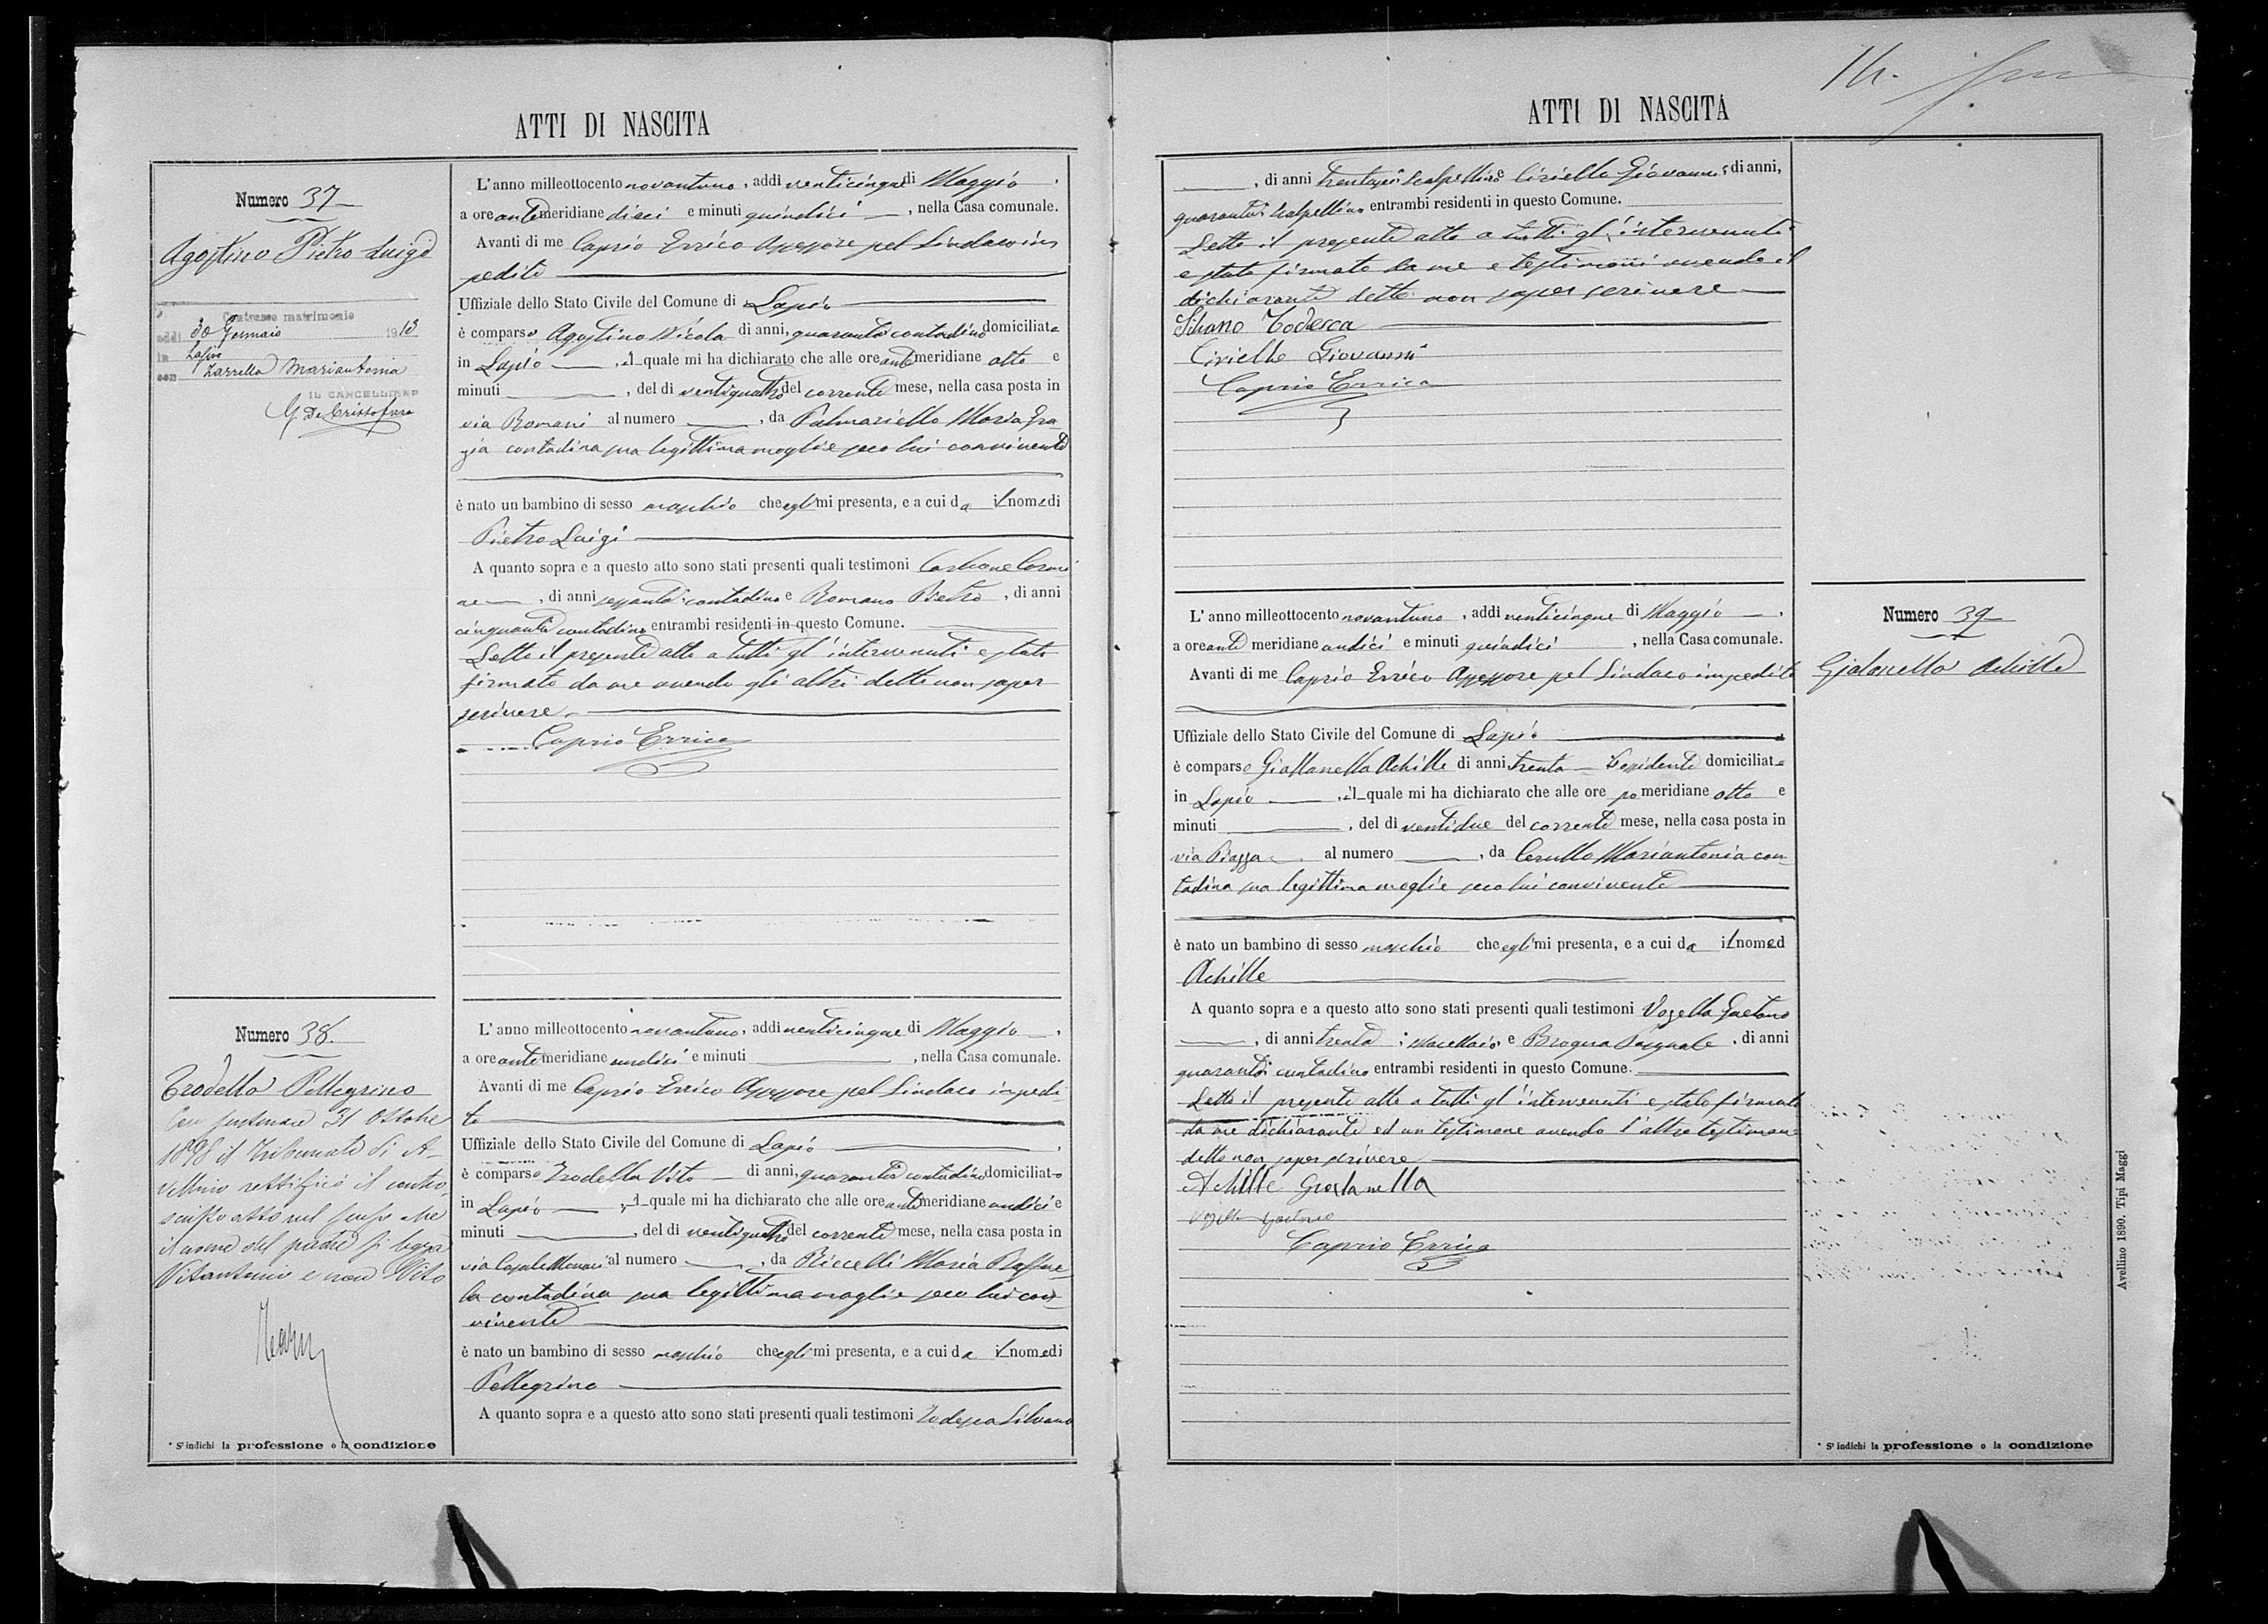 ATTI DI NASCITA
Numero 37
Agostino Pietro Luigi
Contrasse matrimonio
addì 30 Gennaio 1913
in Lapio
con Zarrella Mariantonia
IL CANCELLIERE
G. De Cristofaro
L'anno milleottocento novantuno, addì venticinque di Maggio,
a ore antimeridiane dieci e minuti quindici, nella Casa comunale.
Avanti di me Caprio Errico Assessore pel Sindaco im
pedito
Uffiziale dello Stato Civile del Comune di Lapio
è comparso Agostino Nicola di anni, quaranta contadino domiciliato
in Lapio, il quale mi ha dichiarato che alle ore antimeridiane otto e
minuti, del dì ventiquattro del corrente mese, nella casa posta in
via Romani al numero, da Palmariello Maria Gra-
zia contadina sua legittima moglie seco lui convivente
è nato un bambino di sesso maschio che egli mi presenta, e a cui dà il nome di
Pietro Luigi
A quanto sopra e a questo atto sono stati presenti quali testimoni Carbone Carmi
ne, di anni sessanta contadino e Romano Pietro, di anni
cinquanta contadino entrambi residenti in questo Comune.
Letto il presente atto a tutti gl'intervenuti è stato
firmato da me avendo gli altri detto non saper
scrivere
Caprio Errico
Numero 38.
Trodella Pellegrino
Con sentenza 31 Ottobre
1898 il Tribunale di A-
vellino rettificò il contro
scritto atto nel senso che
il nome del padre si legga
Vitantonio e non Vito
L'anno milleottocento novantuno, addì venticinque di Maggio,
a ore antimeridiane undici e minuti, nella Casa comunale.
Avanti di me Caprio Errico Assessore pel Sindaco impedi
to
Uffiziale dello Stato Civile del Comune di Lapio
è comparso Trodella Vito di anni, quaranta contadino domiciliato
in Lapio, il quale mi ha dichiarato che alle ore antimeridiane undici e
minuti, del dì ventiquattro del corrente mese, nella casa posta in
via al numero, da Riccelli Maria Raffae
la contadina sua legittima moglie seco lui con-
vivente
è nato un bambino di sesso maschio che egli mi presenta, e a cui dà il nome di
Pellegrino
A quanto sopra e a questo atto sono stati presenti quali testimoni Todesca Silvano
* S'indichi la professione o la condizione
14.
ATTI DI NASCITA
, di anni trentasei scalpellino e Ciriello Giovanni, di anni,
quaranta scalpellino entrambi residenti in questo Comune.
Letto il presente atto a tutti gl'intervenuti
è stato firmato da me e testimoni avendo il
dichiarante detto non saper scrivere
Silvano Todesca
Ciriello Giovanni
Caprio Errico
L'anno milleottocento novantuno, addì venticinque di Maggio,
a ore antimeridiane undici e minuti quindici, nella Casa comunale.
Avanti di me Caprio Errico Assessore pel Sindaco impedito
Uffiziale dello Stato Civile del Comune di Lapio
è comparso Giallanella Achille di anni trenta Possidente domiciliato
in Lapio, il quale mi ha dichiarato che alle ore pomeridiane otto e
minuti, del dì ventidue del corrente mese, nella casa posta in
via Piazza al numero, da Cerullo Mariantonia con-
tadina sua legittima moglie seco lui convivente
è nato un bambino di sesso maschio che egli mi presenta, e a cui dà il nome d
Achille
A quanto sopra e a questo atto sono stati presenti quali testimoni Vozella Gaetano
, di anni trenta, Macellaio e Pasquale, di anni
quaranta contadino entrambi residenti in questo Comune.
Letto il presente atto a tutti gl'intervenuti è stato firmato
da me dichiarante ed un testimone avendo l'altro testimone
detto non saper scrivere
Achille Giallanella
Vozella Gaetano
Caprio Errico
Numero 39
Gialonella Achille
Avellino 1890. Tipi Maggi
* S'indichi la professione o la condizione